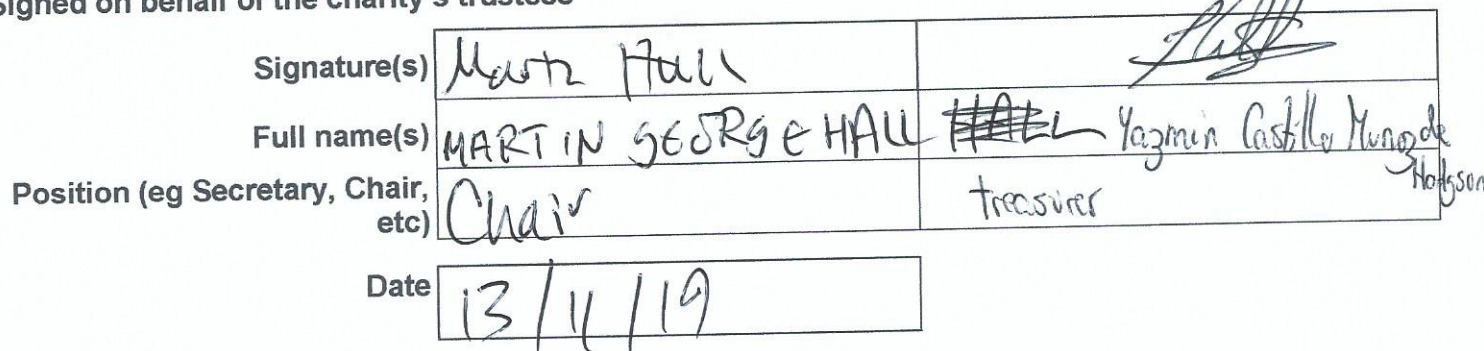 Signed on behalf of the charity's trustees
Signature(s) Martin Hall
Full name(s) MARTIN GEORGE HALL HALL Yazmin Castillo Munoz de
Hodgson
Position (eg Secretary, Chair,
etc) Chair treasurer
Date 13/11/19